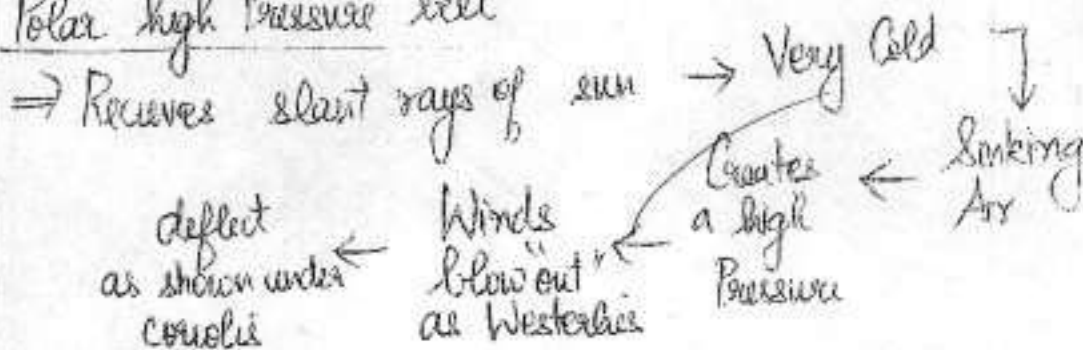 Polar high Pressure belt
⇒ Recieves slant rays of sun → Very Cold
Sinking
Air
← Creates
a high
Pressure
← Winds
blow "out"
as Westerlies
← deflect
as shown under
coriolis